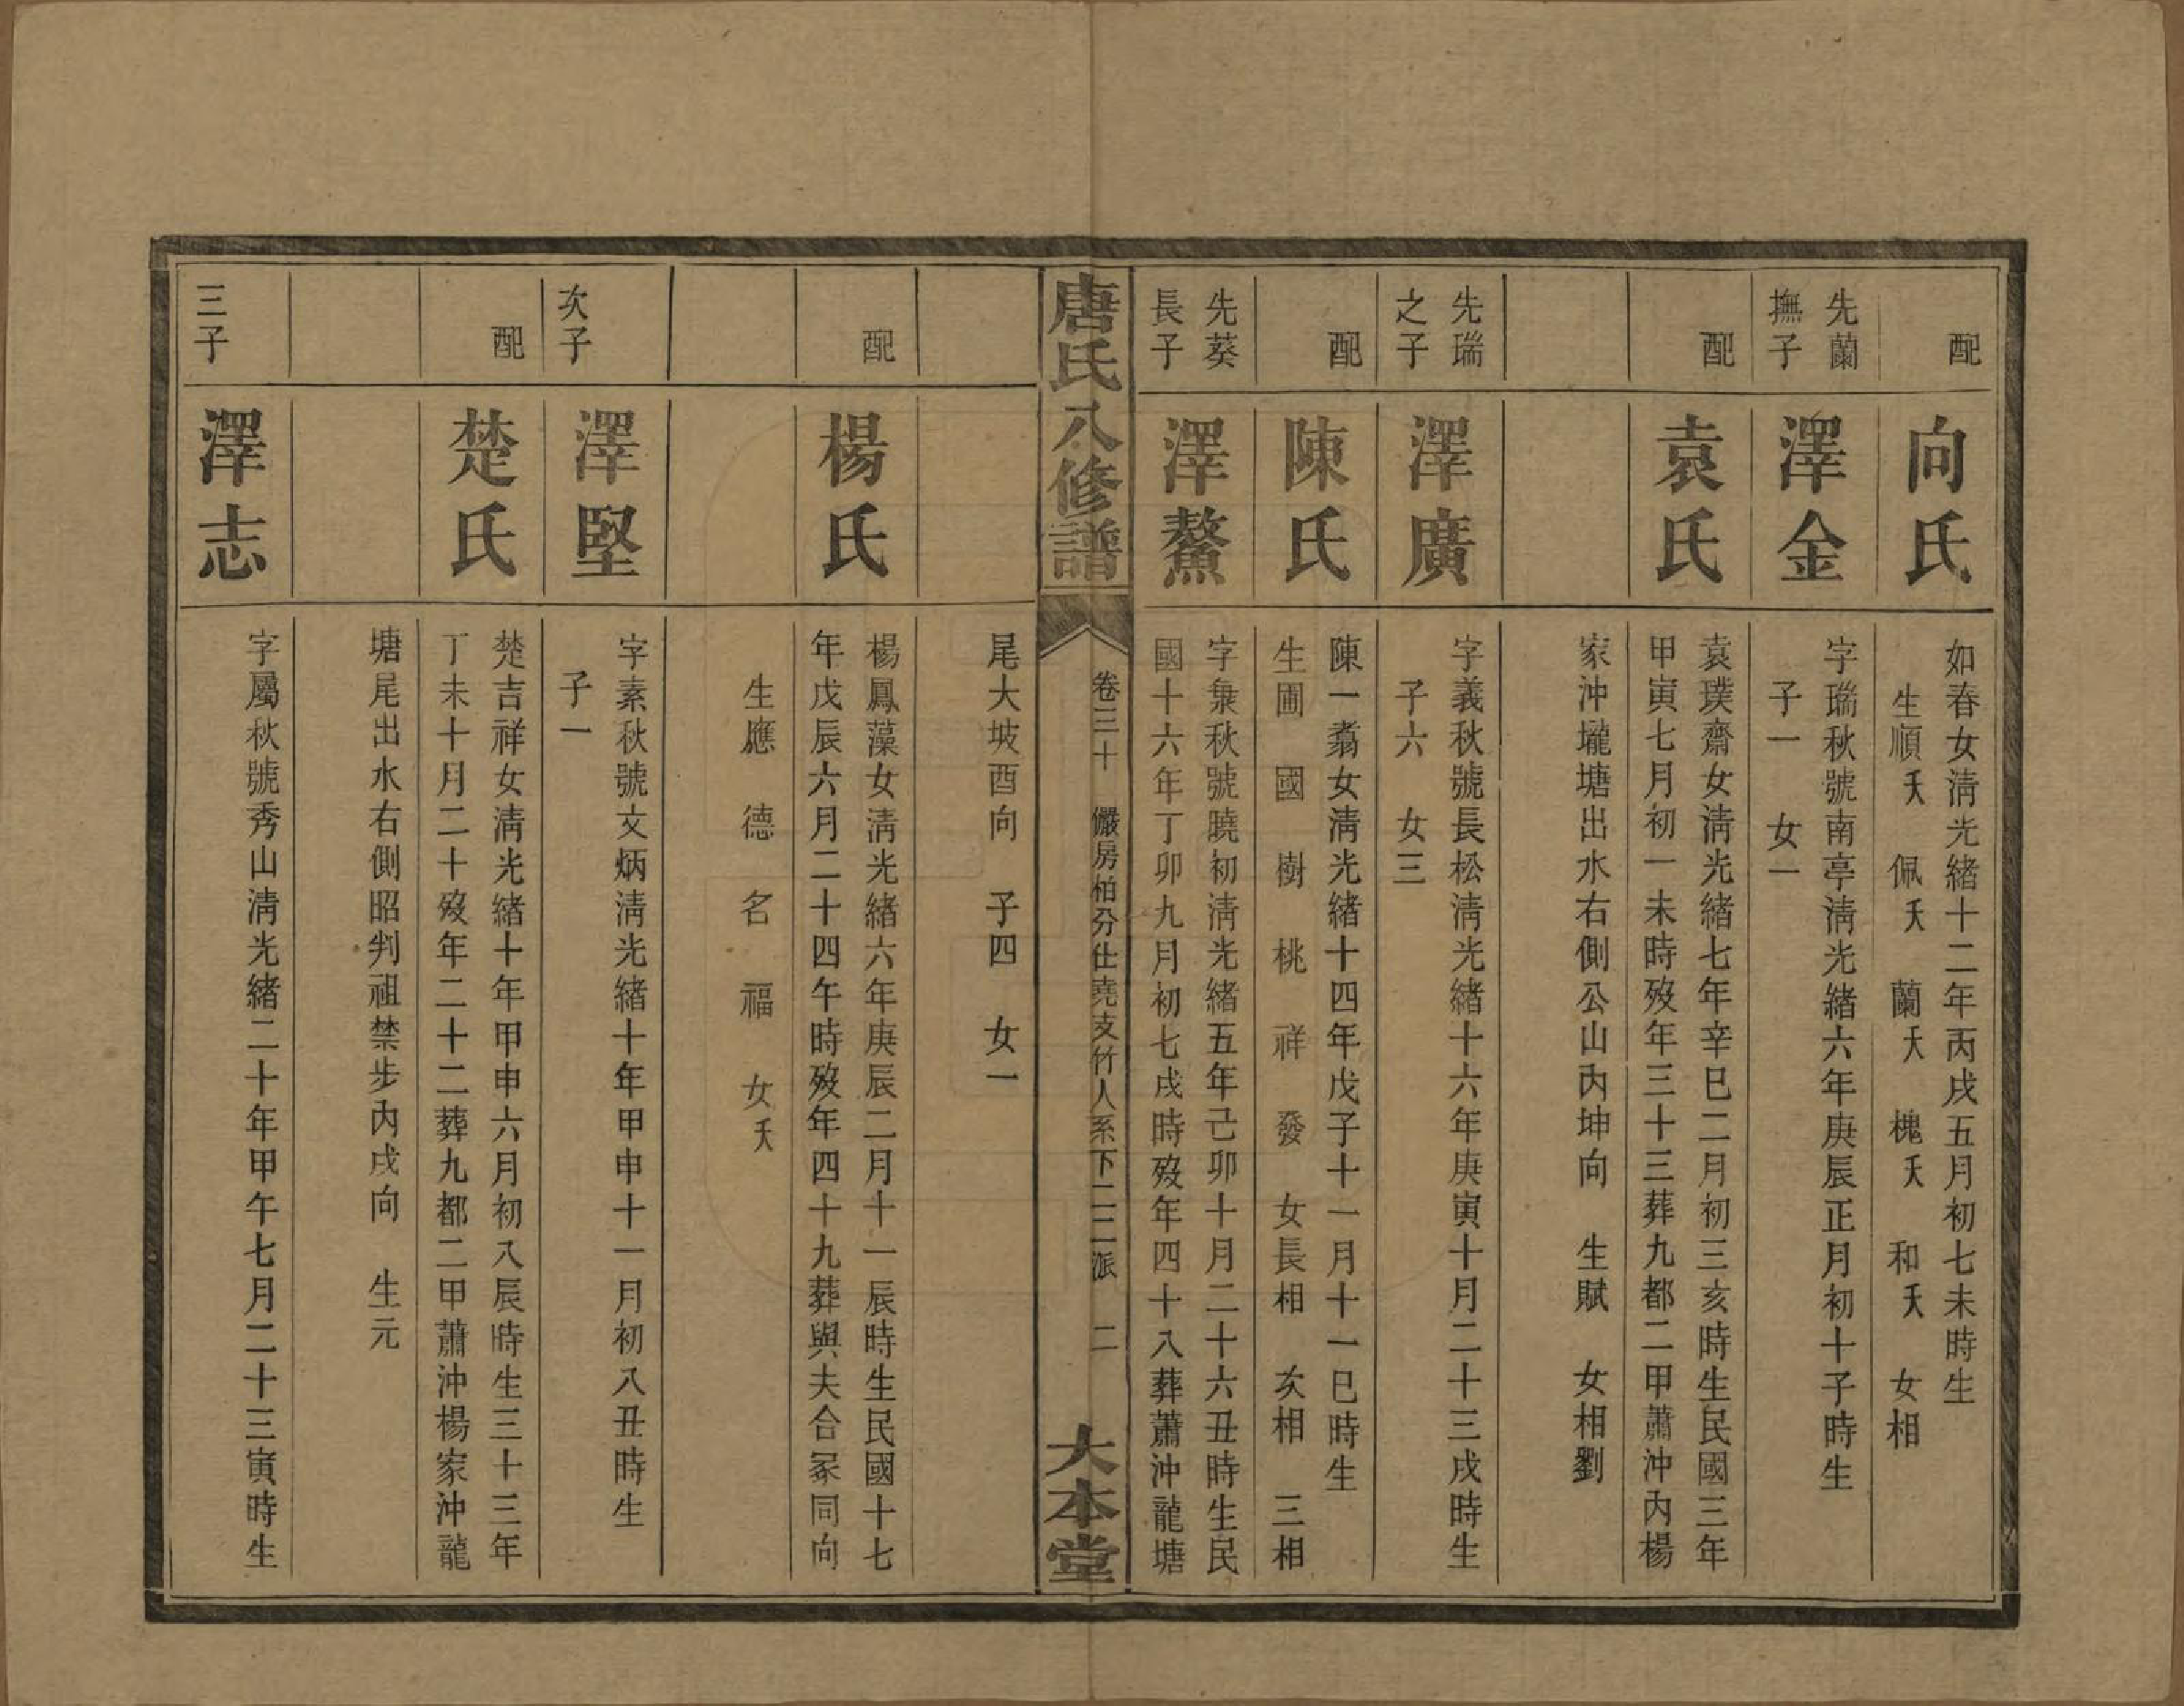 配
向氏
如春女淸光緒十二年丙戌五月初七未時生
生順夭 佩夭 蘭夭 槐夭 和夭 女相
先蘭
撫子
澤金
字瑞秋號南亭淸光緒六年庚辰正月初十子時生
子一 女一
配
袁氏
袁璞齋女淸光緒七年辛巳二月初三亥時生民國三年
甲寅七月初一未時歿年三十三葬九都二甲蕭沖內楊
家沖壠塘出水右側公山丙坤向 生賦 女相劉
先瑞
之子
澤廣
字義秋號長松淸光緒十六年庚寅十月二十三戌時生
子六 女三
配
陳氏
陳一翥女淸光緒十四年戊子十一月十一巳時生
生圃 國 樹 桃 祥 發 女長相 次相 三相
先葵
長子
澤鰲
字泉秋號曉初淸光緒五年己卯十月二十六丑時生民
國十六年丁卯九月初七戌時歿年四十八葬蕭沖龍塘
唐氏八修譜
卷三十 儼房柏分仕堯支竹人系下二二派 二
大本堂
尾大坡酉向 子四 女一
配
楊氏
楊鳳藻女淸光緒六年庚辰二月十一辰時生民國十七
年戊辰六月二十四午時歿年四十九葬與夫合冢同向
生應 德 名 福 女夭
次子
澤堅
字素秋號文炳淸光緒十年甲申十一月初八丑時生
子一
配
楚氏
楚吉祥女淸光緒十年甲申六月初八辰時生三十三年
丁未十月二十歿年二十二葬九都二甲蕭沖楊家沖龍
塘尾出水右側昭判祖禁步內戌向 生元
三子
澤志
字屬秋號秀山淸光緒二十年甲午七月二十三寅時生